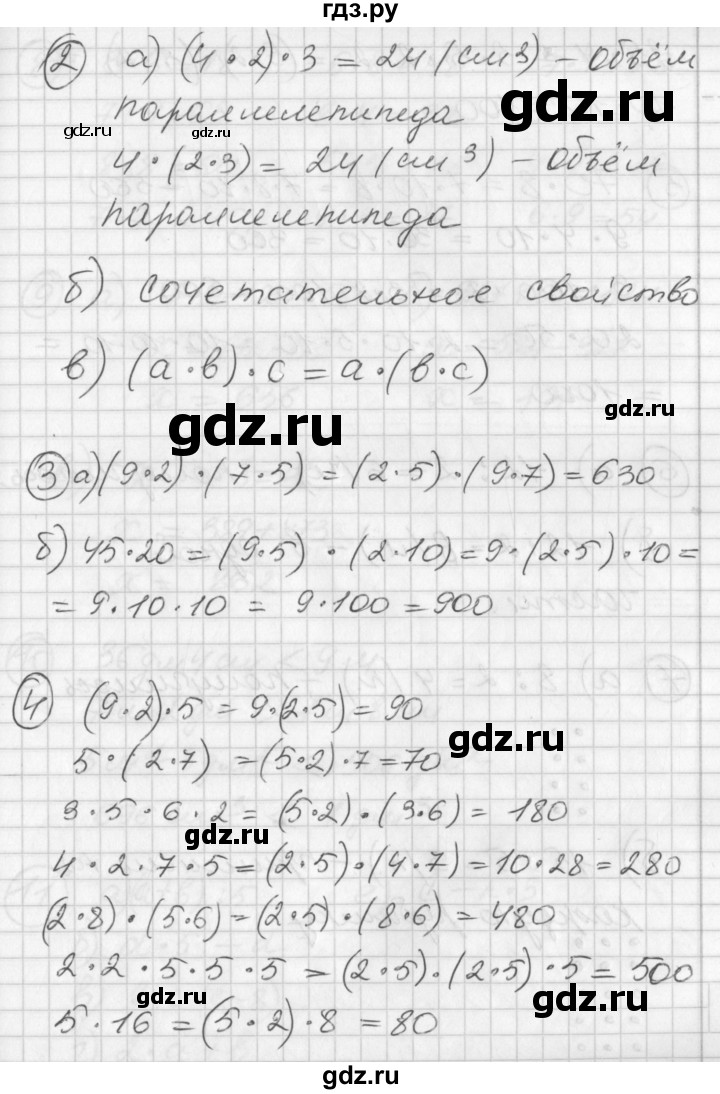 гдз.ру
② а) (4·2)·3 = 24 (см³) – объём
параллелепипеда
gdz.ru
gdz.ru
gdz.ru
4·(2·3) = 24 (см³) – объём
параллелепипеда
б) сочетательное свойство
в) (а·в)·с = а·(в·с)
gdz.ru
gdz.ru
③ а) (9·2)·(7·5) = (2·5)·(9·7) = 630
gdz.ru
б) 45·20 = (9·5)·(2·10) = 9·(2·5)·10 =
= 9·10·10 = 9·100 = 900
gdz.ru
④ (9·2)·5 = 9·(2·5) = 90
gdz.ru
5·(2·7) = (5·2)·7 = 70
3·5·6·2 = (5·2)·(3·6) = 180
gdz.ru
4·2·7·5 = (2·5)·(4·7) = 10·28 = 280
gdz.ru
(2·8)·(5·6) = (2·5)·(8·6) = 480
2·2·5·5·5 = (2·5)·(2·5)·5 = 500
gdz.ru
gdz.ru
5·16 = (5·2)·8 = 80
gdz.ru